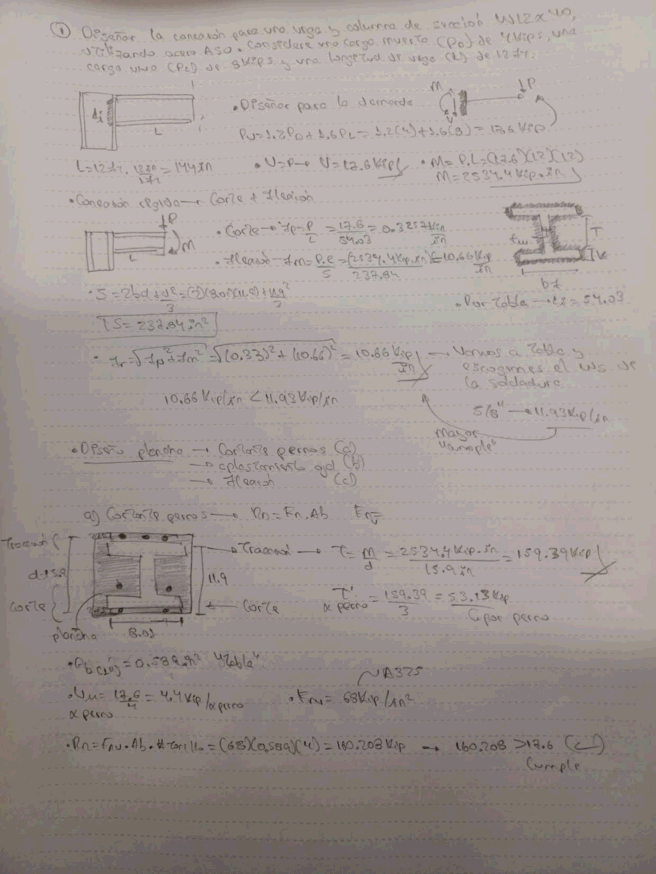 ① Diseñar la conexión para una viga y columna de sección W12x40,
utilizando acero A50. Considere una carga muerta (PD) de 4Kips, una
carga viva (PL) de 8Kips y una longitud de viga (L) de 12ft.
• Diseñar para la demanda
Pu=1.2PD+1.6PL=1.2(4)+1.6(8)=17.6Kip
M
P
L
L=12ft. =144in
• V=P→ V=17.6Kip
• M=P.L=(17.6)(12)(12)
M=2534.4Kip.in
• Conexión rígida → Corte + Flexión
P
M
L
• Corte → fp=P/L=17.6/54.03=0.3257Kip/in
• Flexión → fm= =(2534.4Kip.in)/237.84=10.66Kip/in
tw
T
K
bf
• Por tabla → =54.03
• S=2bd+d²/3=
S=237.84in²
• fr=√fp²+fm²=√(0.33)²+(10.66)²=10.66Kip/in → Vamos a tabla y
escogemos el de
la soldadura
10.66Kip/in<11.93Kip/in
5/8" → 11.93Kip/in
mayor
"cumple"
• Diseño plancha → Cortante pernos (a)
→ aplastamiento (b)
→ Flexión (c)
a) Cortante pernos → Rn=Fn.Ab
Tracción
→ Tracción → T=M/d=2534.4Kip.in/15.9in=159.39Kip
11.9
Corte
→ Corte
T x perno=159.39/3=53.13Kip
por perno
plancha
8.01
"tabla"
A325
• Vu=17.6/4=4.4Kip/x perno
x perno
• Fnv=68Kip/in²
• Rn=Fnv.Ab.# =(68)(0.589)(4)=160.208Kip → 160.208>17.6
Cumple